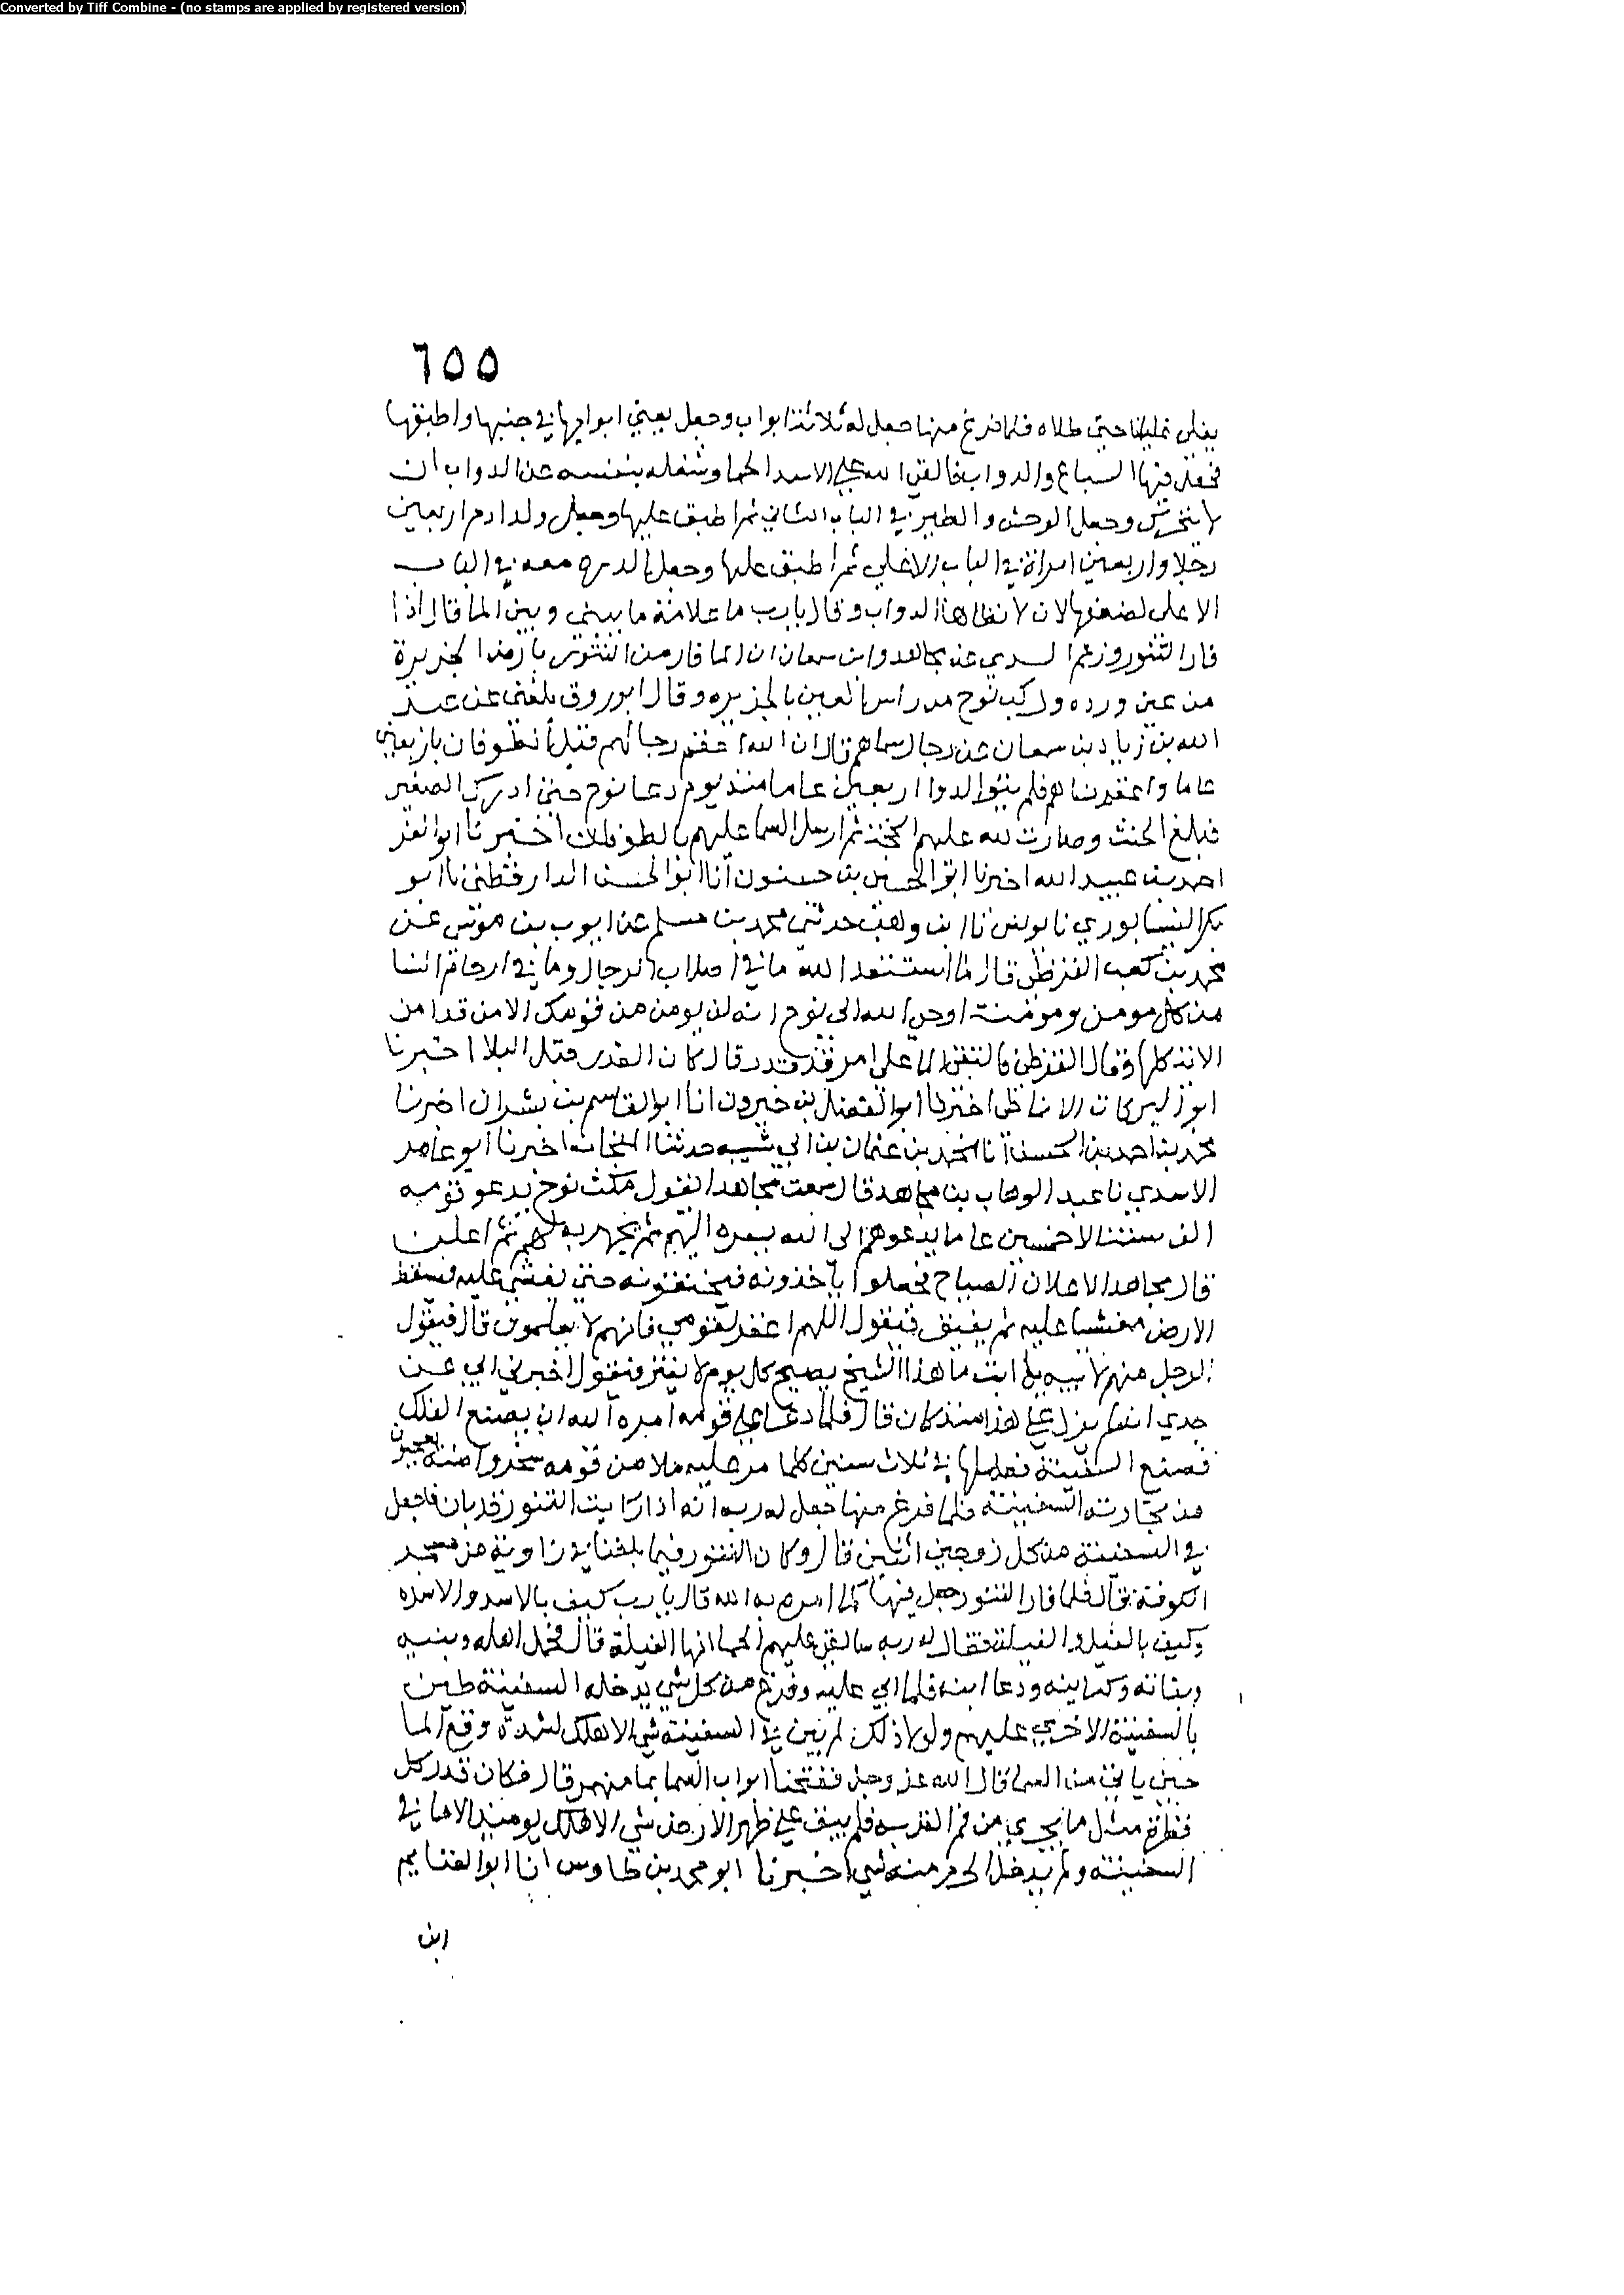 Converted by Tiff Combine - (no stamps are applied by registered version)
٦٥٥
يغلي غليانا حتى طلاه فلما فرغ منها جعل له ثلاثة ابواب وجعل يعني ابوابها في جنبها واطبقها
فجعل فيها السباع والدواب فالقى الله على الاسد الحما وشغله بنفسه عن الدواب ان
لا يتحرش وجعل الوحش والطير في الباب الثاني ثم اطبق عليها وجعل ولد ادم اربعين
رجلا واربعين امراة في الباب الاعلى ثم اطبق عليها وجعل الدره معه في الباب
الاعلى لضعفها لان لا تطاها الدواب وقال يا رب ما علامة ما بيني وبين الما قال اذا
فار التنور وزعم السدي عن مجاهد وابن سمعان ان الما فار من التنور بارض الجزيرة
من عين ورده وركب نوح من راس العين بالجزيره وقال ابو روق بلغني عن عبد
الله بن زياد بن سمعان عن رجال سماهم قال ان الله اعقم رجالهم قبل الطوفان باربعين
عاما واعقم نساهم فلم يتوالدوا اربعين عاما منذ يوم دعا نوح حتى ادرك الصغير
فبلغ الحنث وصارت لله عليهم الحجة ثم ارسل السما عليهم بالطوفان اخبرنا ابو العز
احمد بن عبيد الله اخبرنا ابو الحسين بن حسنون انا ابو الحسن الدارقطني نا ابو
بكر النيسابوري نا يونس نا ابن وهب حدثني محمد بن مسلم عن ايوب بن موسى عن
محمد بن كعب القرظي قال لما استنقذ الله ما في اصلاب الرجال وما في ارحام النسا
من كل مومن ومومنة اوحى الله الى نوح انه لن يومن من قومك الا من قد امن
الاية كلها وقال القرظي فالتقى الما على امر قد قدر قال كان القدر قبل البلا اخبرنا
ابو البركات الانماطي اخبرنا ابو الفضل بن خيرون انا ابو القاسم بن بشران اخبرنا
محمد بن احمد بن الحسن انا محمد بن عثمان بن ابي شيبه حدثنا المنجاب اخبرنا ابو عامر
الاسدي نا عبد الوهاب بن مجاهد قال سمعت مجاهدا يقول مكث نوح يدعو قومه
الف سنة الا خمسين عاما يدعوهم الى الله يسره اليهم ثم يجهر به لهم ثم اعلن
قال مجاهد الاعلان الصياح فجعلوا ياخذونه فيخنقونه حتى يغشى عليه فيسقط
الارض مغشيا عليه ثم يفيق فيقول اللهم اغفر لقومي فانهم لا يعلمون قال فيقول
الرجل منهم لابيه يا ابت ما هذا الشيخ يصيح كل يوم لا يفتر فيقول اخبرني ابي عن
جدي انه لم يزل على هذا منذ كان قال فلما دعا على قومه امره الله ان يصنع الفلك
فصنع السفينة فعملها في ثلاث سنين كلما مر عليه ملا من قومه سخروا منه يعجبون
من نجارته السفينة فلما فرغ منها جعل له ربه انه اذا رايت التنور قد بان فاجعل
في السفينة من كل زوجين اثنين قال وكان التنور فيما بلغنا في زاوية من مسجد
الكوفة قال فلما فار التنور جعل فيها كما امره به الله قال يا رب كيف بالاسد والاسده
وكيف بالفيل والفيلة فقال له ربه سالقي عليهم الحما انها الفيلة قال فحمل اهله وبنيه
وبناته وكناينه ودعا ابنه فلما ابى عليه وفرغ من كل شي يدخله السفينة طين
بالسفينة الاخرى عليهم ولولا ذلك لم يبق في السفينة شي الا هلك لشدة وقع الما
حين ياتي من السما قال الله عز وجل ففتحنا ابواب السما بما منهمر قال فكان قدر كل
قطرة مثل ما يجري من فم القربه فلم يبق على ظهر الارض شي الا هلك يوميذ الا ما في
السفينة ولم يدخل الحرم منه شي اخبرنا ابو محمد بن طاوس انا ابو الغنايم
ابن